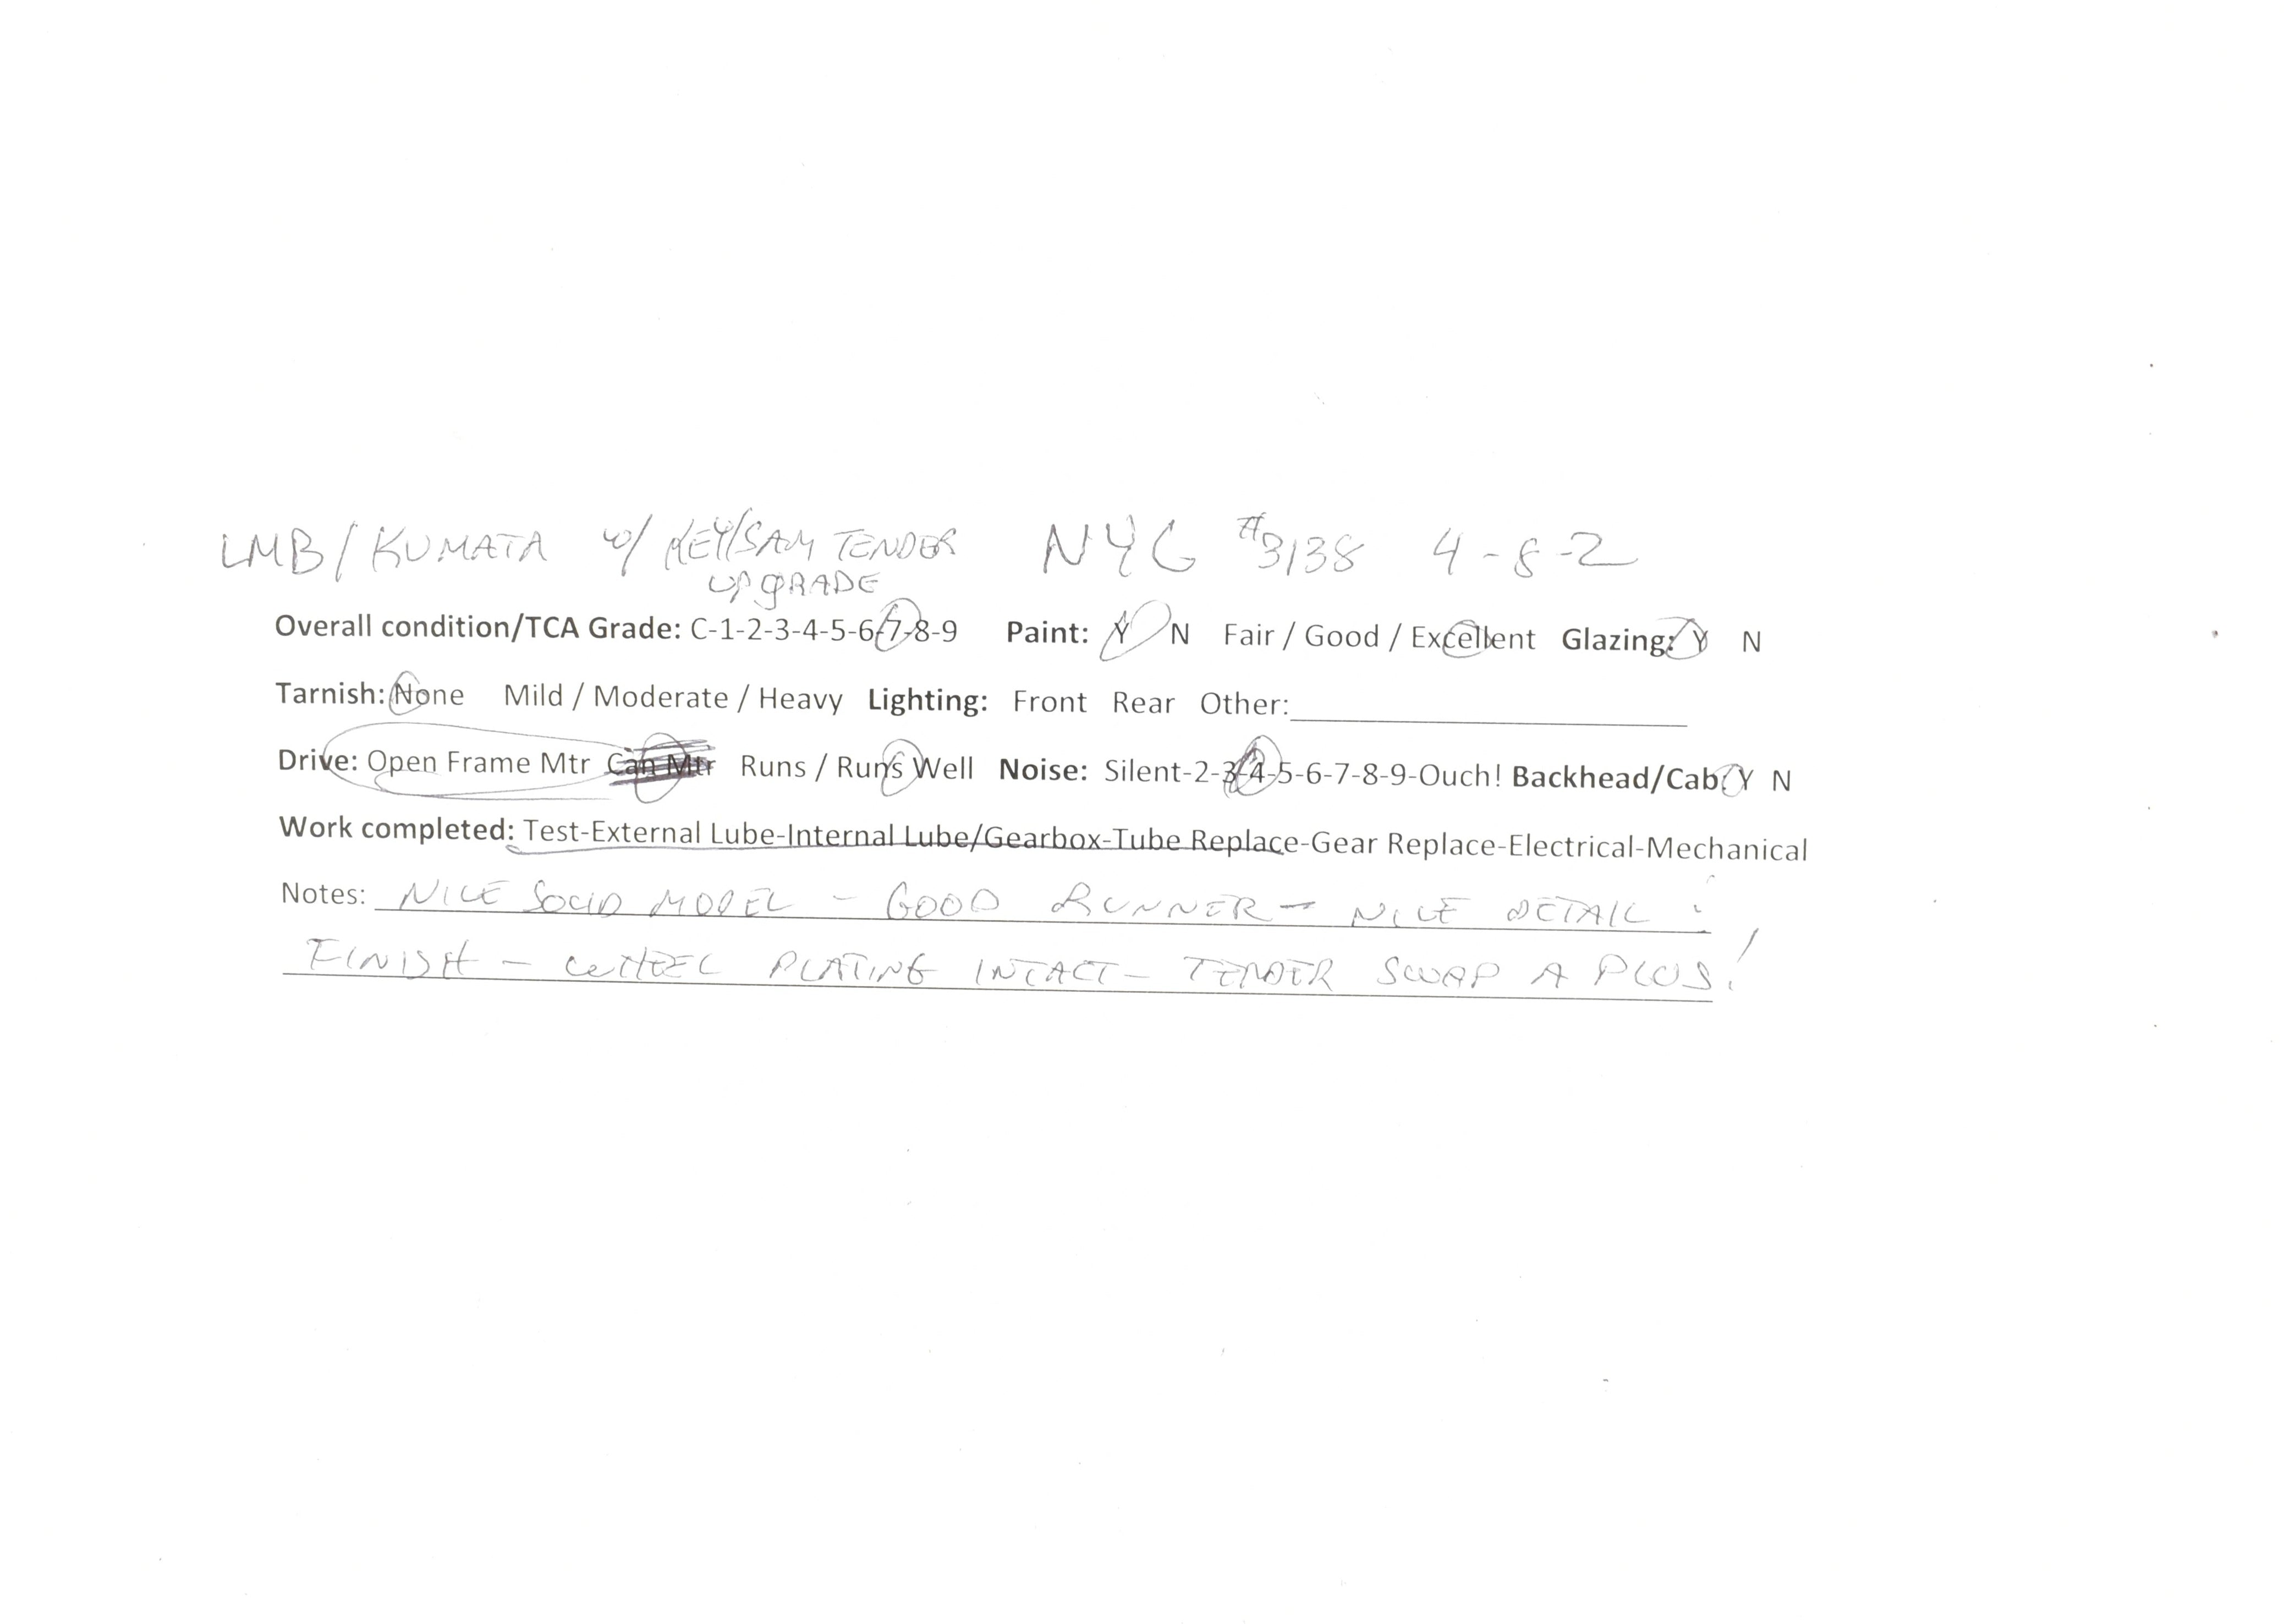 LMB/KUMATA w/ KEY/SAM TENDER NYC #3138 4-8-2
UPGRADE
Overall condition/TCA Grade: C-1-2-3-4-5-6-7-8-9 Paint: Y N Fair / Good / Excellent Glazing: Y N
Tarnish: None Mild / Moderate / Heavy Lighting: Front Rear Other:
Drive: Open Frame Mtr Can Mtr Runs / Runs Well Noise: Silent-2-3-4-5-6-7-8-9-Ouch! Backhead/Cab: Y N
Work completed: Test-External Lube-Internal Lube/Gearbox-Tube Replace-Gear Replace-Electrical-Mechanical
Notes: NICE SOLID MODEL - GOOD RUNNER - NICE DETAIL :
FINISH - WHEEL PLATING INTACT - TENDER SWAP A PLUS!